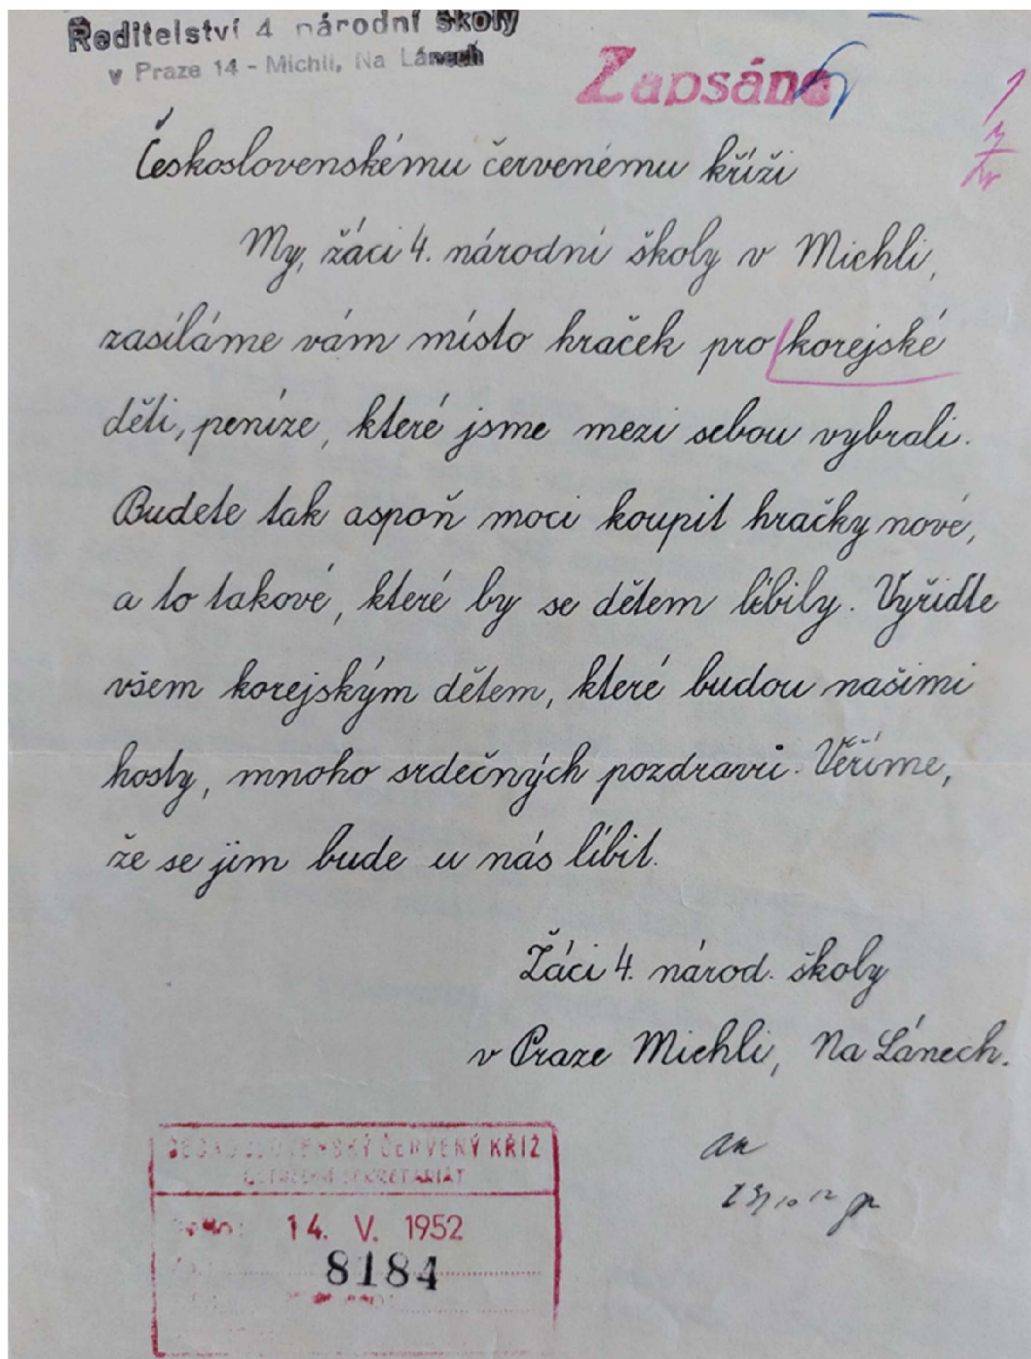 Ředitelství 4 národní školy
v Praze 14 - Michli, Na Lánech
Zapsáno
Československému červenému kříži
My, žáci 4. národní školy v Michli,
zasíláme vám místo hraček pro korejské
děti, peníze, které jsme mezi sebou vybrali.
Budete tak aspoň moci koupit hračky nové,
a to takové, které by se dětem líbily. Vyřiďte
všem korejským dětem, které budou našimi
hosty, mnoho srdečných pozdravů. Věříme,
že se jim bude u nás líbit.
Žáci 4. národ. školy
v Praze Michli, Na Lánech.
ČESKOSLOVENSKÝ ČERVENÝ KŘÍŽ
ÚSTŘEDNÍ SEKRETARIÁT
14. V. 1952
8184